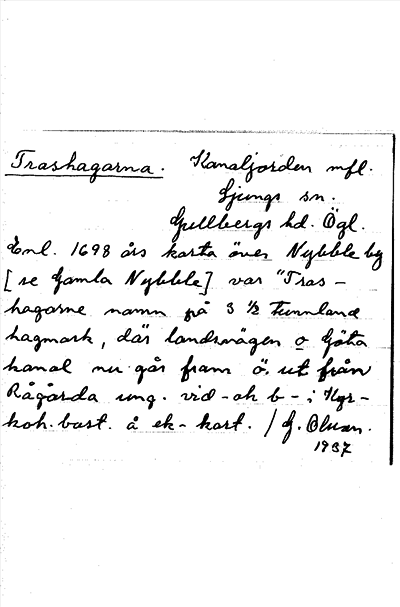 Trashagarna. Kanaljorden mfl.
Ljungs sn.
Gullbergs hd. Ögl.
Enl. 1698 års karta över Nybble by
[se Gamla Nybble] var "Tras-
hagarne namn på 3 1/2 tunnland
hagmark, där landsvägen o Göta
kanal nu går fram ö. ut från
Rågårda ung. vid - ch b - i Kyr-
koh. bost. å ek - kart. / G. Olsson.
1937